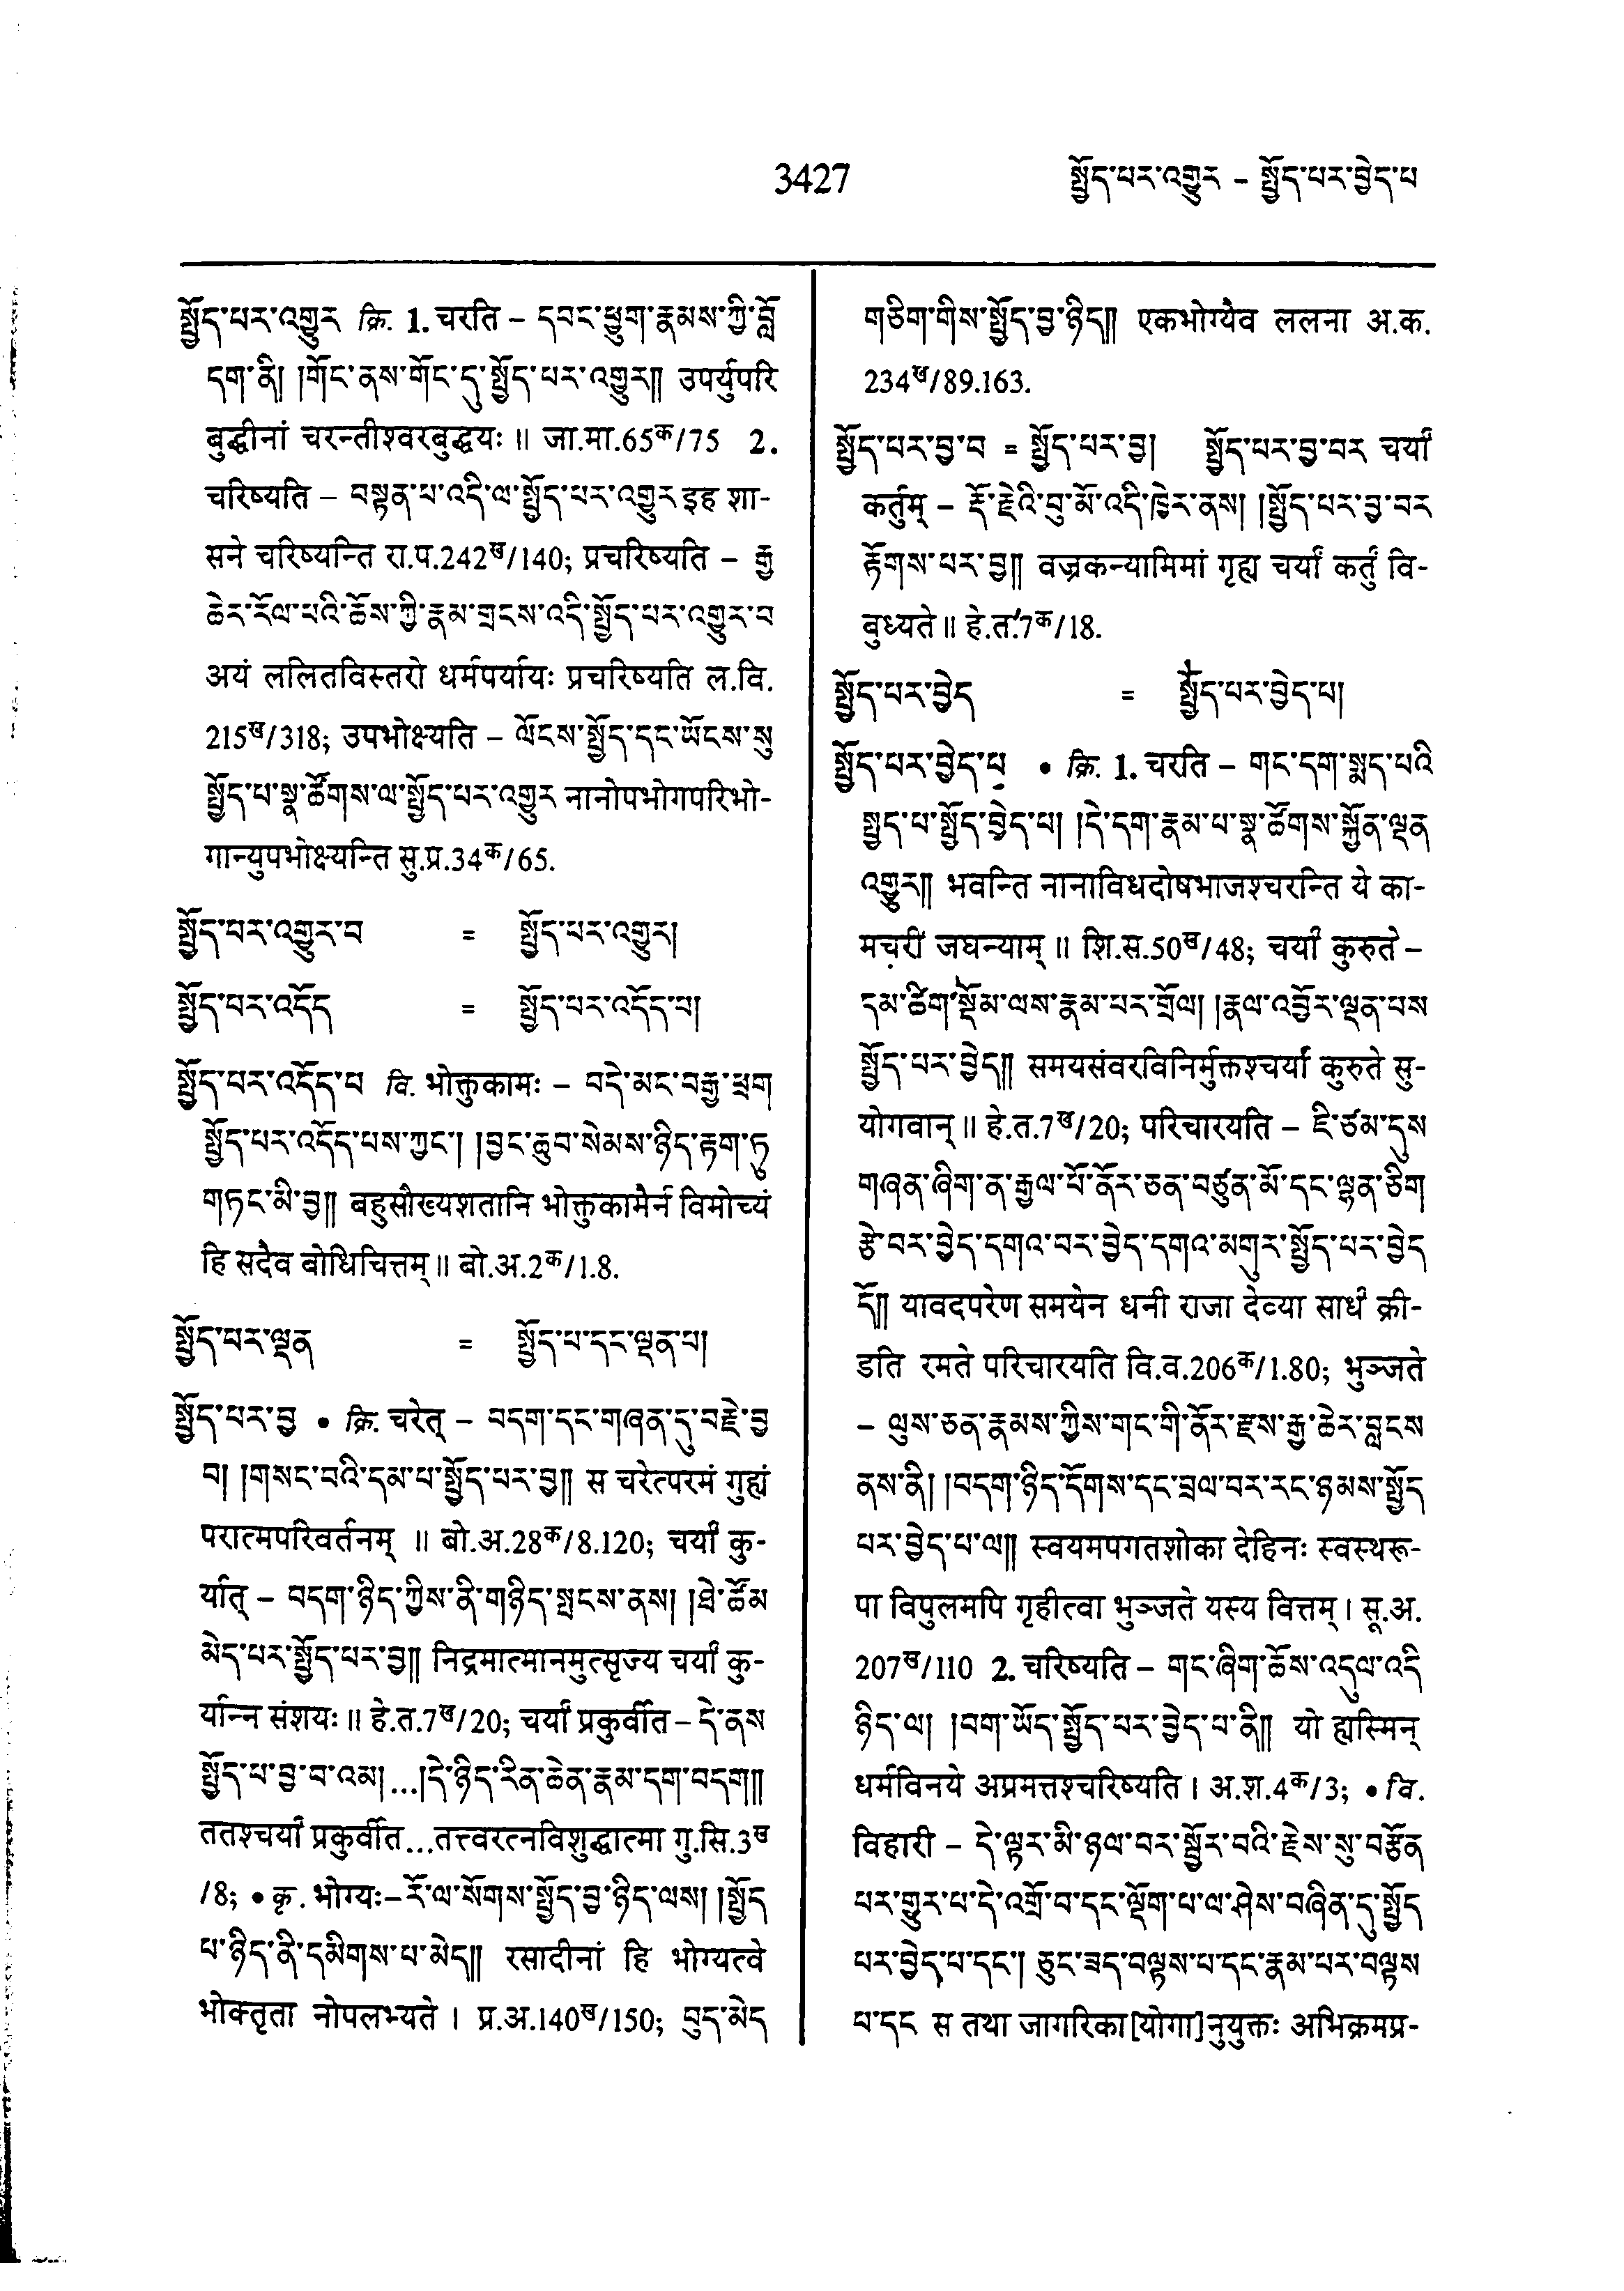 3427
སྤྱོད་པར་འགྱུར – སྤྱོད་པར་བྱེད་པ
སྤྱོད་པར་འགྱུར क्रि. 1. चरति – དབང་ཕྱུག་རྣམས་ཀྱི་བློ་
དག་ནི། །གོང་ནས་གོང་དུ་སྤྱོད་པར་འགྱུར།། उपर्युपरि
बुद्धीनां चरन्तीश्वरबुद्धयः ॥ जा.मा.65क/75 2.
चरिष्यति – བསྟན་པ་འདི་ལ་སྤྱོད་པར་འགྱུར इह शा-
सने चरिष्यन्ति रा.प.242ख/140; प्रचरिष्यति – རྒྱ་
ཆེར་རོལ་པའི་ཆོས་ཀྱི་རྣམ་གྲངས་འདི་སྤྱོད་པར་འགྱུར་བ
अयं ललितविस्तरो धर्मपर्यायः प्रचरिष्यति ल.वि.
215ख/318; उपभोक्ष्यति – ལོངས་སྤྱོད་དང་ཡོངས་སུ་
སྤྱོད་པ་སྣ་ཚོགས་ལ་སྤྱོད་པར་འགྱུར नानोपभोगपरिभो-
गान्युपभोक्ष्यन्ति सु.प्र.34क/65.
སྤྱོད་པར་འགྱུར་བ = སྤྱོད་པར་འགྱུར།
སྤྱོད་པར་འདོད = སྤྱོད་པར་འདོད་པ།
སྤྱོད་པར་འདོད་པ वि. भोक्तुकामः – བདེ་མང་བརྒྱ་ཕྲག
སྤྱོད་པར་འདོད་པས་ཀྱང་། །བྱང་ཆུབ་སེམས་ཉིད་རྟག་ཏུ་
གཏང་མི་བྱ།། बहुसौख्यशतानि भोक्तुकामैर्न विमोच्यं
हि सदैव बोधिचित्तम् ॥ बो.अ.2क/1.8.
སྤྱོད་པར་ལྡན = སྤྱོད་པ་དང་ལྡན་པ།
སྤྱོད་པར་བྱ • क्रि. चरेत् – བདག་དང་གཞན་དུ་བརྗེ་བྱ་
བ། །གསང་བའི་དམ་པ་སྤྱོད་པར་བྱ།། स चरेत्परमं गुह्यं
परात्मपरिवर्तनम् ॥ बो.अ.28क/8.120; चर्यां कु-
र्यात् – བདག་ཉིད་ཀྱིས་ནི་གཉིད་སྤངས་ནས། །ཐེ་ཚོམ
མེད་པར་སྤྱོད་པར་བྱ།། निद्रमात्मानमुत्सृज्य चर्यां कु-
र्यान्न संशयः ॥ हे.त.7ख/20; चर्यां प्रकुर्वीत – དེ་ནས
སྤྱོད་པ་བྱ་བ་འམ།...།དེ་ཉིད་རིན་ཆེན་རྣམ་དག་བདག།།
ततश्चर्यां प्रकुर्वीत...तत्त्वरत्नविशुद्धात्मा गु.सि.3ख
/8; • कृ. भोग्यः– རོ་ལ་སོགས་སྤྱོད་བྱ་ཉིད་ལས། །སྤྱོད
པ་ཉིད་ནི་དམིགས་པ་མེད།། रसादीनां हि भोग्यत्वे
भोक्तृता नोपलभ्यते । प्र.अ.140ख/150; བུད་མེད
གཅིག་གིས་སྤྱོད་བྱ་ཉིད།། एकभोग्यैव ललना अ.क.
234ख/89.163.
སྤྱོད་པར་བྱ་བ = སྤྱོད་པར་བྱ། སྤྱོད་པར་བྱ་བར चर्यां
कर्तुम् – རྡོ་རྗེའི་བུ་མོ་འདི་ཁྲིར་ནས། །སྤྱོད་པར་བྱ་བར
རྟོགས་པར་བྱ།། वज्रकन्यामिमां गृह्य चर्यां कर्तुं वि-
बुध्यते ॥ हे.त.7क/18.
སྤྱོད་པར་བྱེད = སྤྱོད་པར་བྱེད་པ།
སྤྱོད་པར་བྱེད་པ • क्रि. 1. चरति – གང་དག་སྨད་པའི
སྤྱད་པ་སྤྱོད་བྱེད་པ། །དེ་དག་རྣམ་པ་སྣ་ཚོགས་སྐྱོན་ལྡན
འགྱུར།། भवन्ति नानाविधदोषभाजश्चरन्ति ये का-
मचरीं जघन्याम् ॥ शि.स.50ख/48; चर्यां कुरुते –
དམ་ཚིག་སྡོམ་ལས་རྣམ་པར་གྲོལ། །རྣལ་འབྱོར་ལྡན་པས
སྤྱོད་པར་བྱེད།། समयसंवरविनिर्मुक्तश्चर्यां कुरुते सु-
योगवान् ॥ हे.त.7ख/20; परिचारयति – ཇི་ཙམ་དུས
གཞན་ཞིག་ན་རྒྱལ་པོ་ནོར་ཅན་བཙུན་མོ་དང་ལྷན་ཅིག
རྩེ་བར་བྱེད་དགའ་བར་བྱེད་དགའ་མགུར་སྤྱོད་པར་བྱེད
དོ།། यावदपरेण समयेन धनी राजा देव्या सार्धं क्री-
डति रमते परिचारयति वि.व.206क/1.80; भुञ्जते
– ལུས་ཅན་རྣམས་ཀྱིས་གང་གི་ནོར་རྫས་རྒྱ་ཆེར་བླངས
ནས་ནི། །བདག་ཉིད་དོགས་དང་བྲལ་བར་རང་ཉམས་སྤྱོད
པར་བྱེད་པ་ལ།། स्वयमपगतशोका देहिनः स्वस्थरू-
पा विपुलमपि गृहीत्वा भुञ्जते यस्य वित्तम् । सू.अ.
207ख/110 2. चरिष्यति – གང་ཞིག་ཆོས་འདུལ་འདི་
ཉིད་ལ། །བག་ཡོད་སྤྱོད་པར་བྱེད་པ་ནི།། यो ह्यस्मिन्
धर्मविनये अप्रमत्तश्चरिष्यति । अ.श.4क/3; • वि.
विहारी – དེ་ལྟར་མི་ཉལ་བར་སྦྱོར་བའི་རྗེས་སུ་བརྩོན
པར་གྱུར་པ་དེ་འགྲོ་བ་དང་ལྡོག་པ་ལ་ཤེས་བཞིན་དུ་སྤྱོད
པར་བྱེད་པ་དང་། ཅུང་ཟད་བལྟས་པ་དང་རྣམ་པར་བལྟས
པ་དང स तथा जागरिका[योगा]नुयुक्तः अभिक्रमप्र-